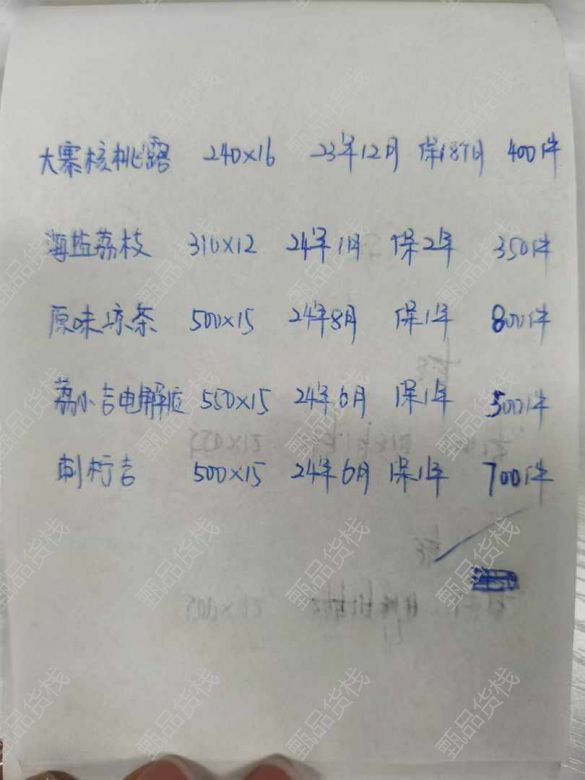 大寨核桃露 240×16 23年12月 保18个月 400件
海盐荔枝 310×12 24年1月 保2年 350件
原味凉茶 500×15 24年8月 保1年 800件
荔小吉电解质 550×15 24年6月 保1年 500件
刺柠吉 500×15 24年6月 保1年 700件
甄品货栈